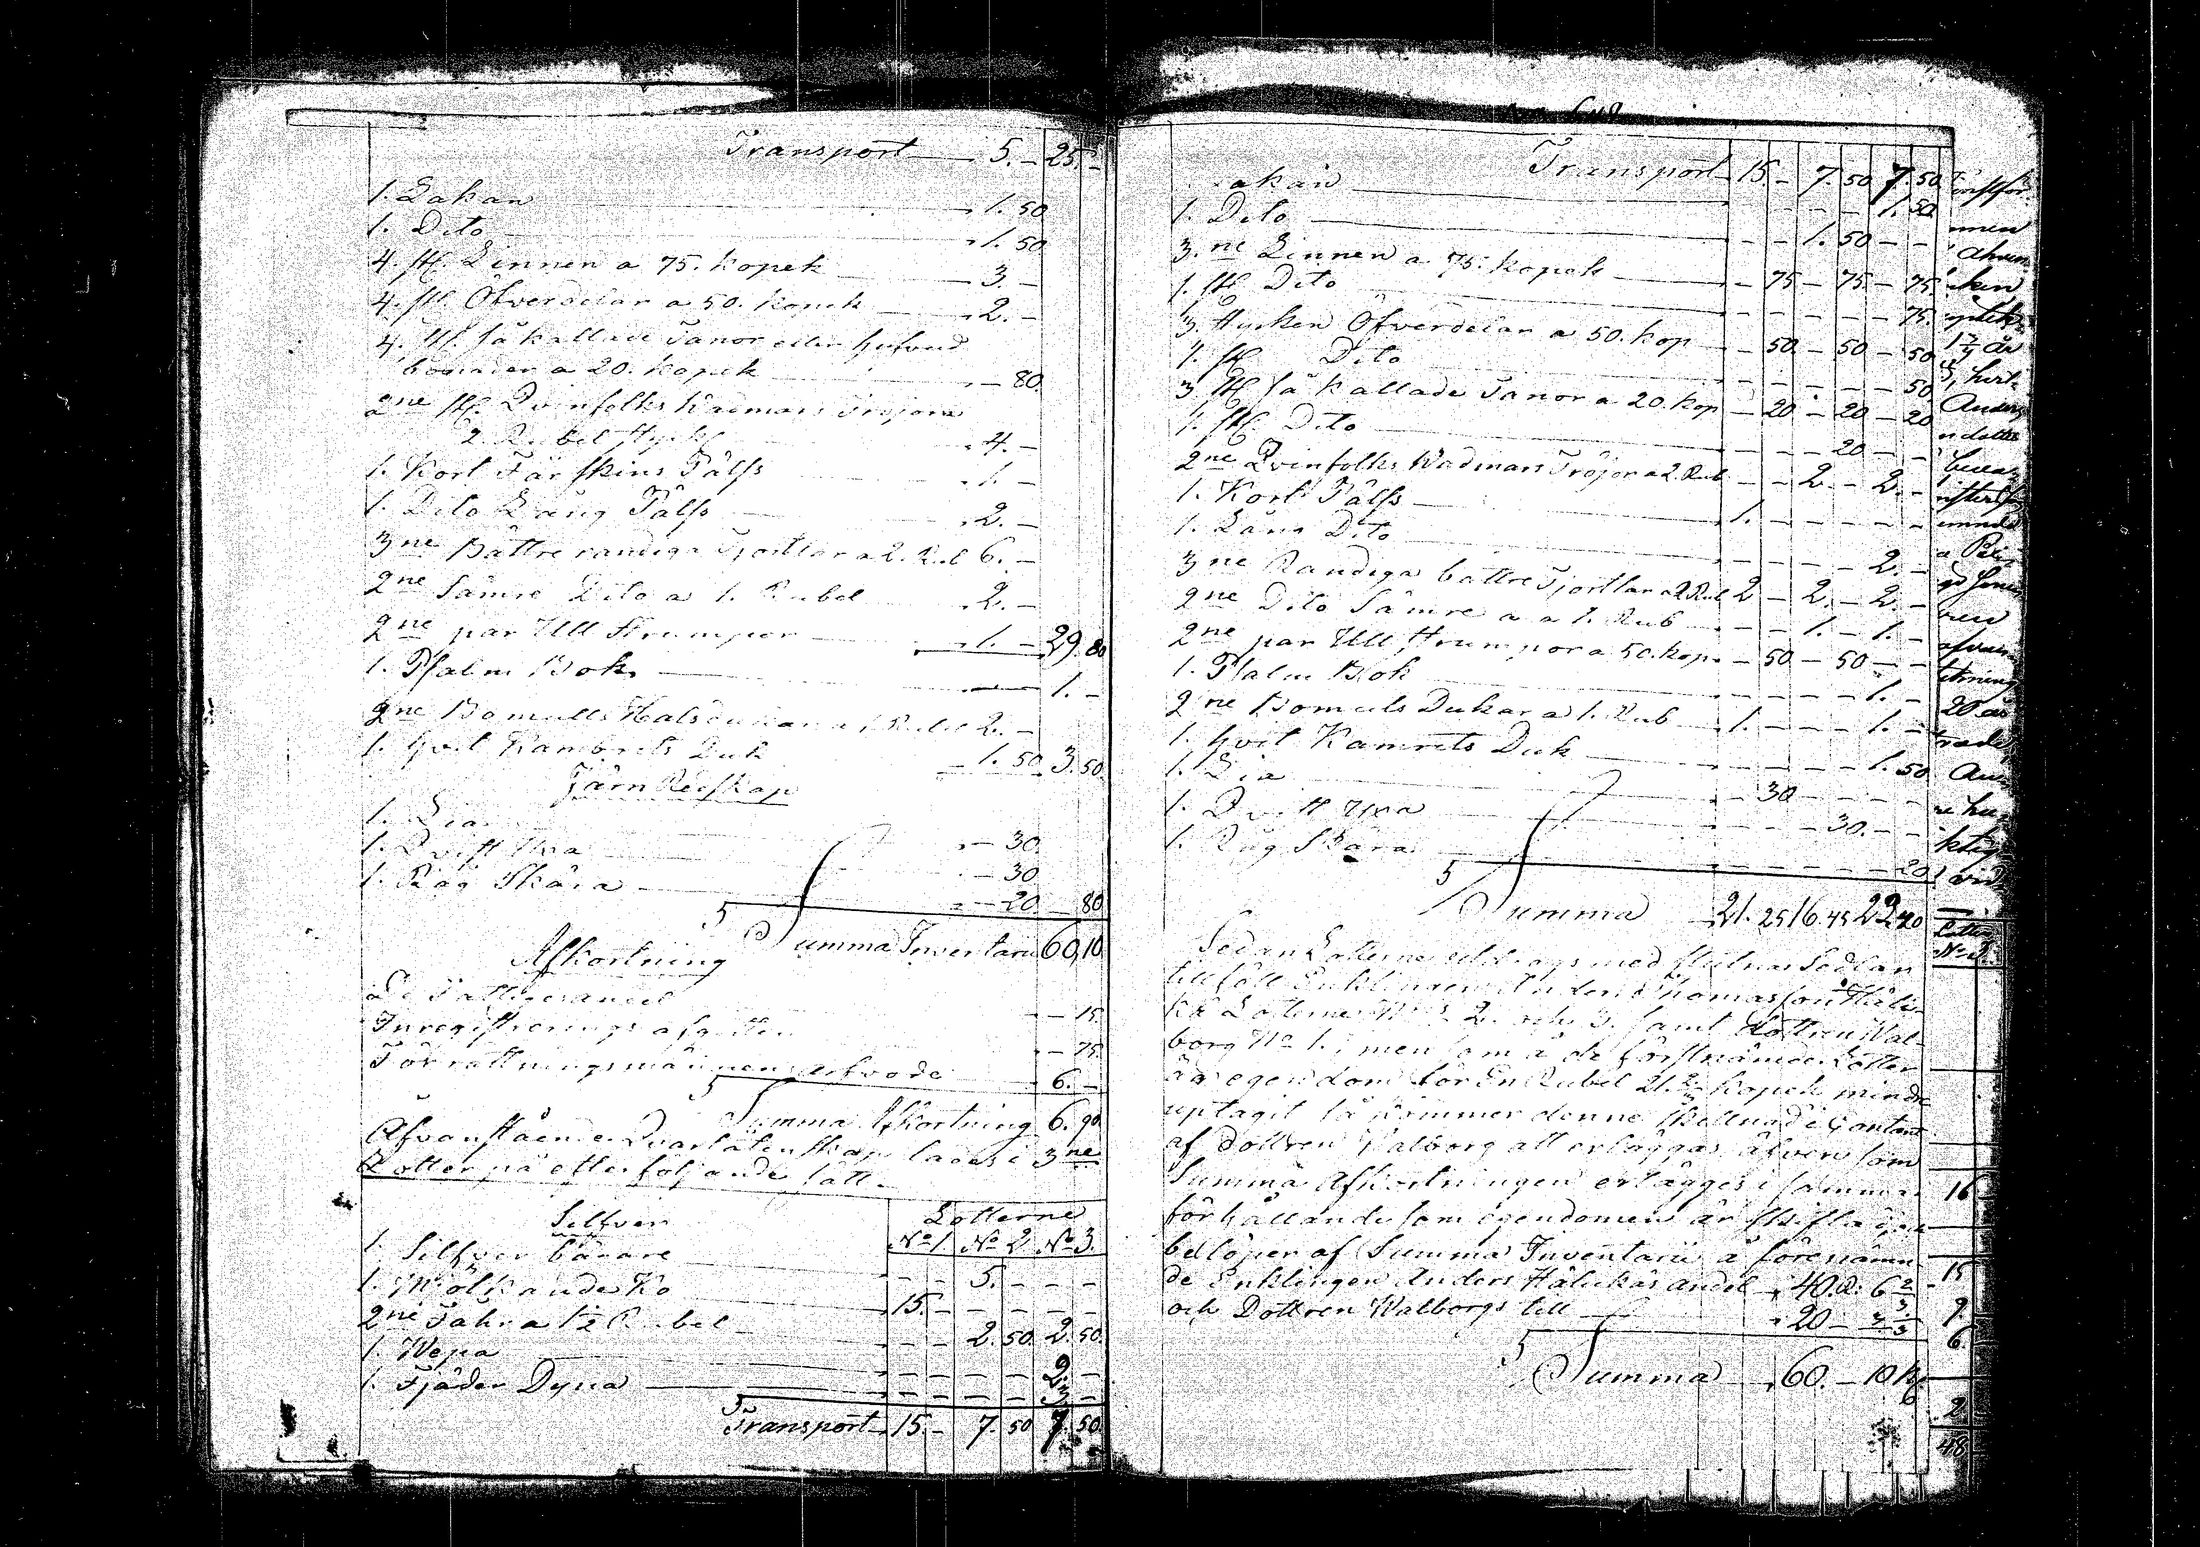 Transport 5. - 25 -
1. Lakan 1. 50
1. Dito 1. 50
4. st. Linnen a 75. kopek 3. -
4. st. Öfverdelar a 50. kopek 2. -
4. st. så kallade Tanor eller hufvud
bonader a 20. kopek - 80.
2ne st. Qvinfolks Wadmars Tröjor a
2 Rubel stycke 4. -
1. Kort Fårskins Pälss 1. -
1. Dito Lång Pälss 2. -
3ne Bättre randiga Tjortlar a 2. Rub 6. -
2ne Sämre Dito a 1. Rubel 2. -
2ne par Ull Strumpor 1. - 29. 80
1. Psalm Bok 1. -
2ne Bomulls Halsdukar a 1 Rubel 2. -
1. hvit Kambrits Duk 1. 50 3. 50
Järn Redskap
1. Lia - 30
1. Qvist Yxa - 30
1. Råg Skära - 20 80
Summa Inventarii 60,10
Afkortning
De Fattigas andel - 15.
Inregistrerings afgiften - 75.
Förrättningsmännens arfvode 6. -
Summa Afkortning 6. 90
Åfvanstående Qvarlåtenskap lades i 3ne
Lotter på efterföljande sätt.
Silfver Lotterne
No 1. No 2. No 3.
1. Silfver bägare - - 5. - - -
1. Mölkande Ko 15. - - - - -
2ne Fåhr a 1½ Rubel - - 2. 50. 2. 50.
1. Wepa - - - - 2. -
1. Fjäder Dyna - - - - 3. -
Transport 15. - 7. 50 7. 50.
Transport 15. - 7. 50 7. 50
Lakan - - - - 1. 50
1. Dito - - 1. 50 - -
3.ne Linnen a 75. kopek - 75 - 75. - 75.
1. st. Dito - - - - - 75.
3. stycken Öfverdelar a 50. kop - 50. - 50 - 50
1. st. Dito - - - - - 50
3 st. så kallade Tanor a 20. kop - 20 - 20 - 20
1. st. Dito - - - 20 - -
2ne Qvinfolks Wadmars Tröjor a 2. Rub - - 2. - 2. -
1. Kort Pälss 1. - - - - -
1. Lång Dito - - - - 2. -
3ne Randiga battre Tjortlar a 2 Rub 2 - 2. - 2. -
2ne Dito Sämre a a 1. Rub - - 1. - 1. -
2ne par Ull Strumpor a 50. kop. - 50 - 50 - -
1. Psalm Bok - - - - 1. -
2ne Bomuls Dukar a 1. Rub 1. - - - 1. -
1. hvit Kamrits Duk - - - - 1. 50
1. Lia - 30 - - - -
1. Qvist Yxa - - - 30. - -
1. Råg Skära - - - - - 20
Summa 21. 25 16. 45 22 40
Sedan Lotterne utdrags med slutnas Sedlar
tillföll Enklingen Anders Thomasson Häli-
kä Lotterne No 2. och 3. samt dottren Wal-
borg No 1.; men som å de förstnämnde Lotter
är egendom för En Rubel 21. ⅔ kopek mindre
uptagit så kommer denne skillnad i Contant
af dottren Walborg att erläggas, äfven som
Summa Afkortningen erlägges i samma
förhållande som egendomen är skiftad, och
belöper af Summa Inventarii å förenämn-
de Enklingen Anders Hälikäs andel 40. R. 6 ⅔
och Dottren Walborgs till 20 - 3 ⅓
Summa 60. - 10 k